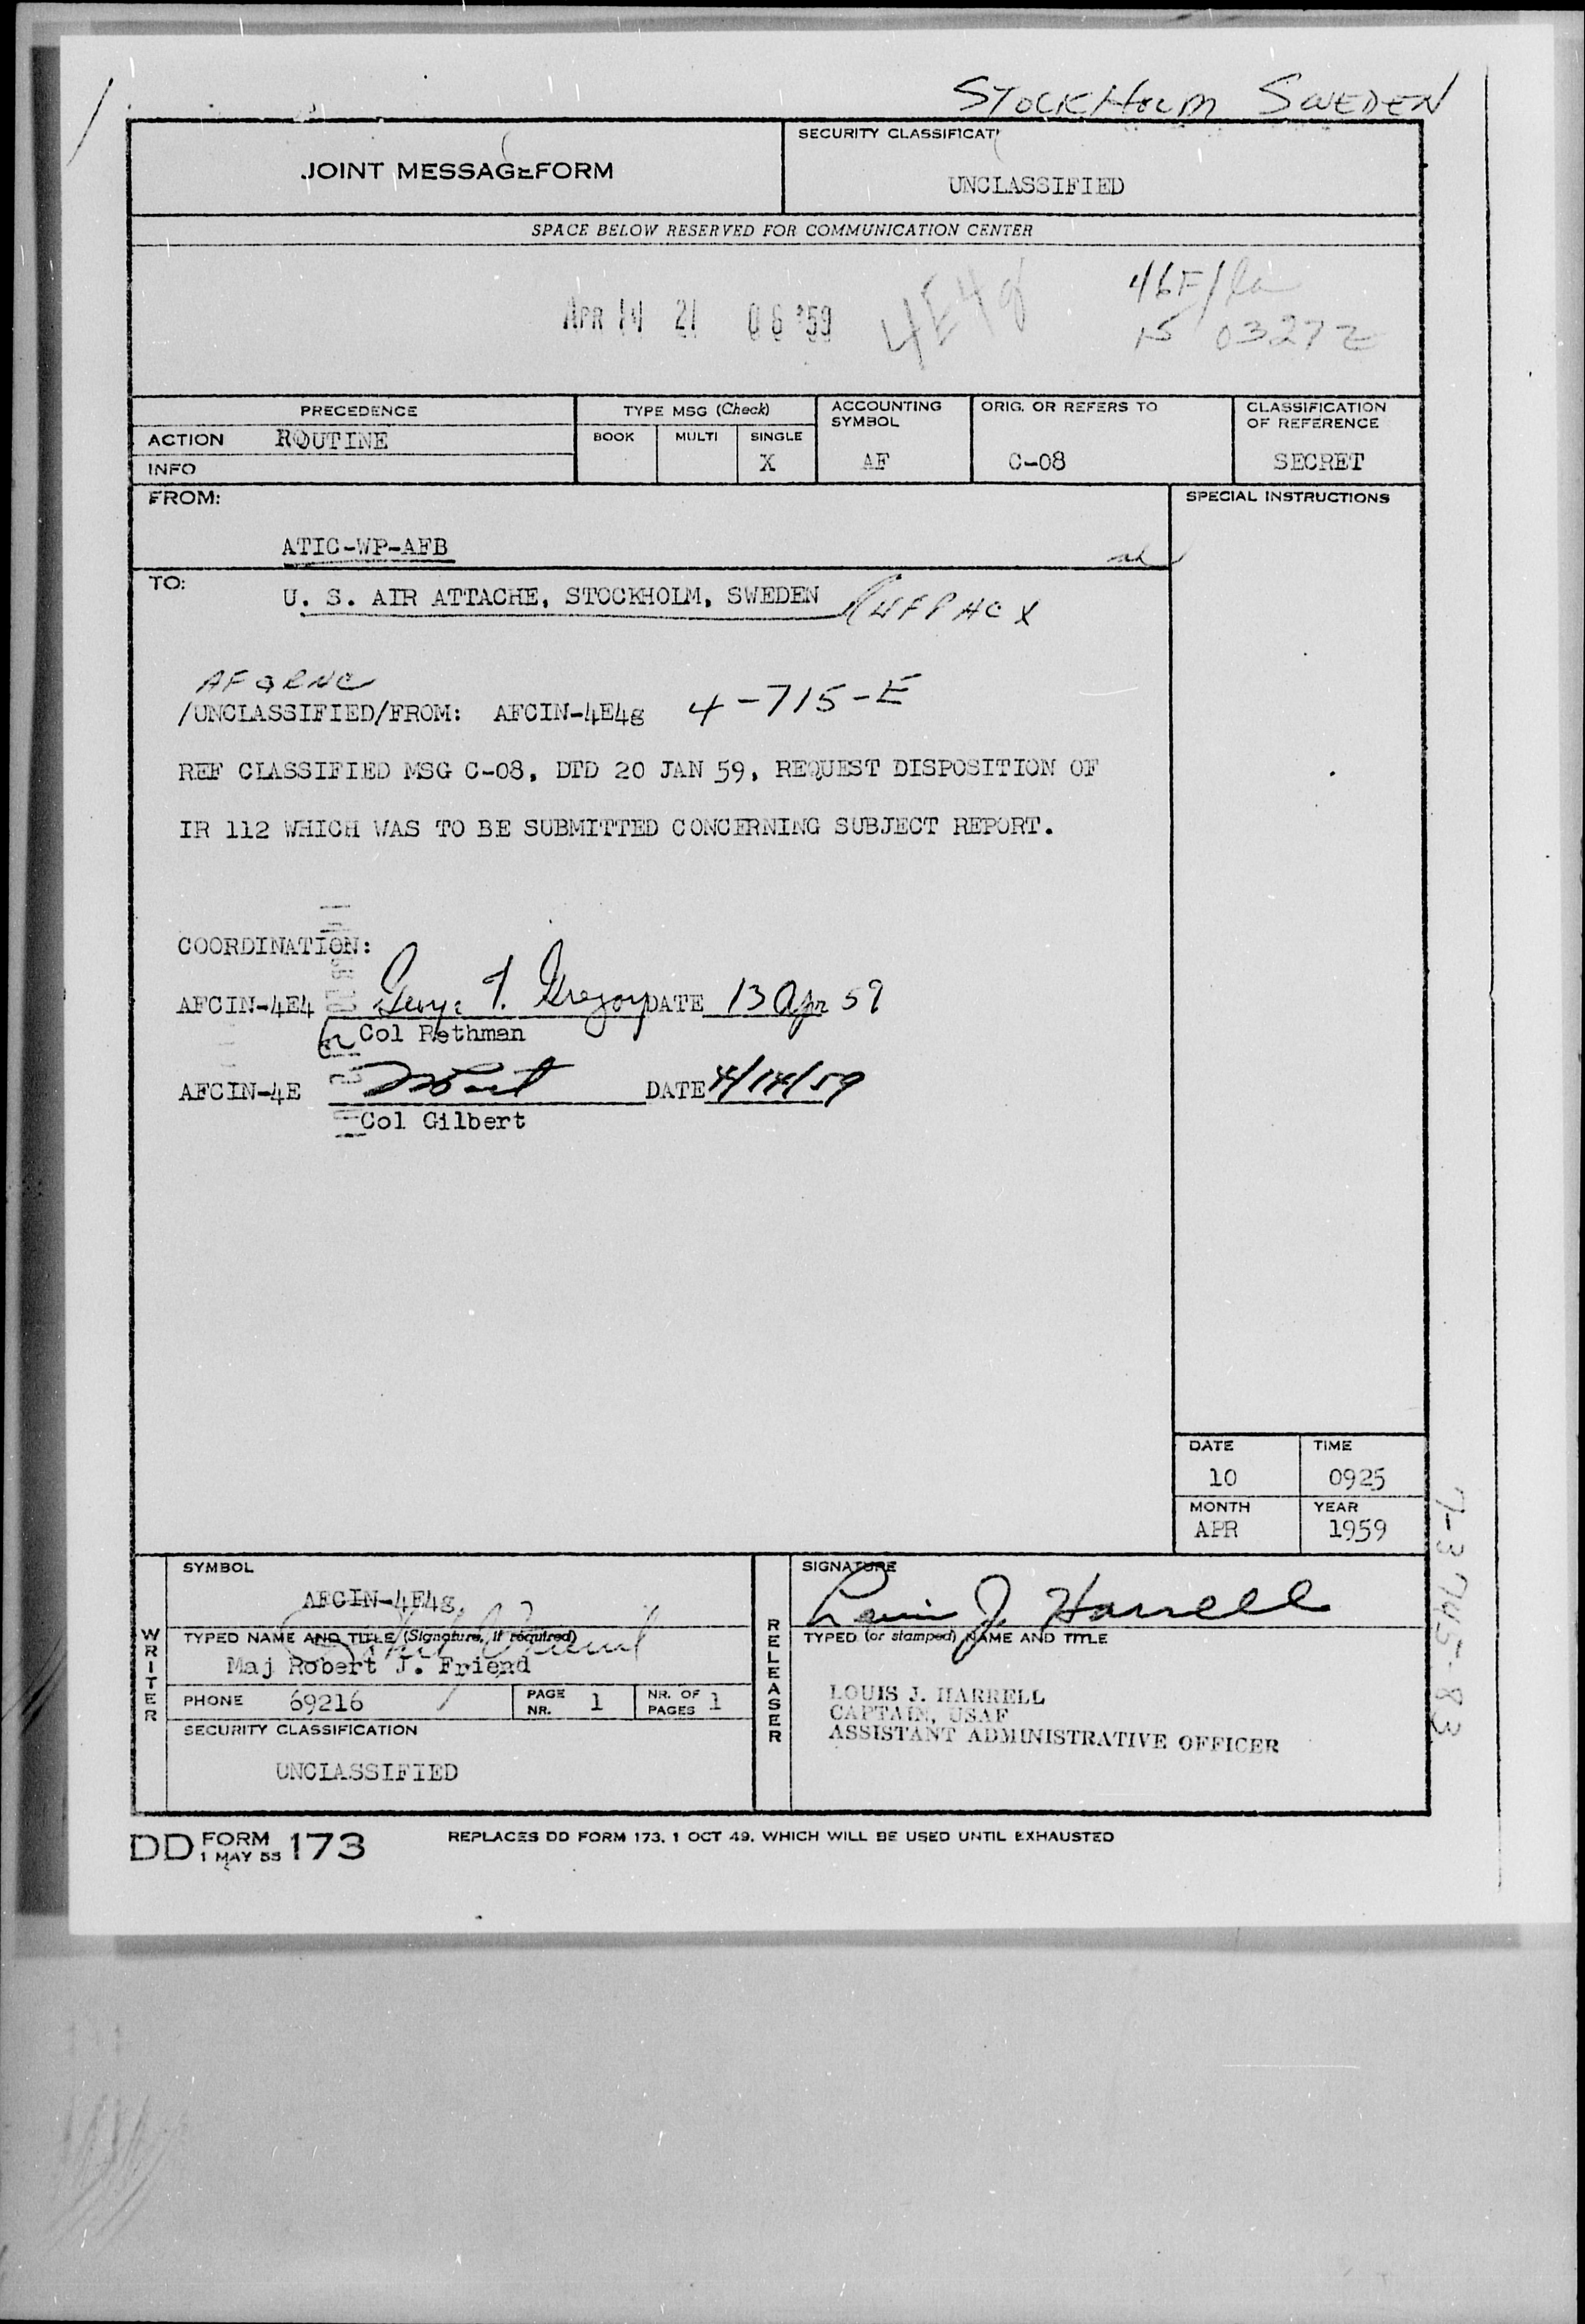 STOCKHOLM SWEDEN
JOINT MESSAGEFORM
SECURITY CLASSIFICATI
UNCLASSIFIED
SPACE BELOW RESERVED FOR COMMUNICATION CENTER
APR 14 21 06 '59
4E4g
15 0327Z
PRECEDENCE
ACTION ROUTINE
INFO
TYPE MSG (Check)
BOOK MULTI SINGLE
X
ACCOUNTING SYMBOL
AF
ORIG. OR REFERS TO
C-08
CLASSIFICATION OF REFERENCE
SECRET
FROM:
ATIC-WP-AFB
SPECIAL INSTRUCTIONS
TO:
U. S. AIR ATTACHE, STOCKHOLM, SWEDEN
/UNCLASSIFIED/FROM: AFCIN-4E4g 4-715-E
REF CLASSIFIED MSG C-08, DTD 20 JAN 59, REQUEST DISPOSITION OF
IR 112 WHICH WAS TO BE SUBMITTED CONCERNING SUBJECT REPORT.
COORDINATION:
AFCIN-4E4 George T. Gregory DATE 13 Apr 59
Col Rethman
AFCIN-4E DATE 4/14/59
Col Gilbert
DATE
10
TIME
0925
MONTH
APR
YEAR
1959
WRITER
SYMBOL
AFCIN-4E4g
TYPED NAME AND TITLE (Signature, if required)
Maj Robert J. Friend
PHONE 69216
PAGE NR. 1
NR. OF PAGES 1
SECURITY CLASSIFICATION
UNCLASSIFIED
RELEASER
SIGNATURE
Louis J. Harrell
TYPED (or stamped) NAME AND TITLE
LOUIS J. HARRELL
CAPTAIN, USAF
ASSISTANT ADMINISTRATIVE OFFICER
7-3745-83
DD FORM 173
1 MAY 55
REPLACES DD FORM 173, 1 OCT 49, WHICH WILL BE USED UNTIL EXHAUSTED